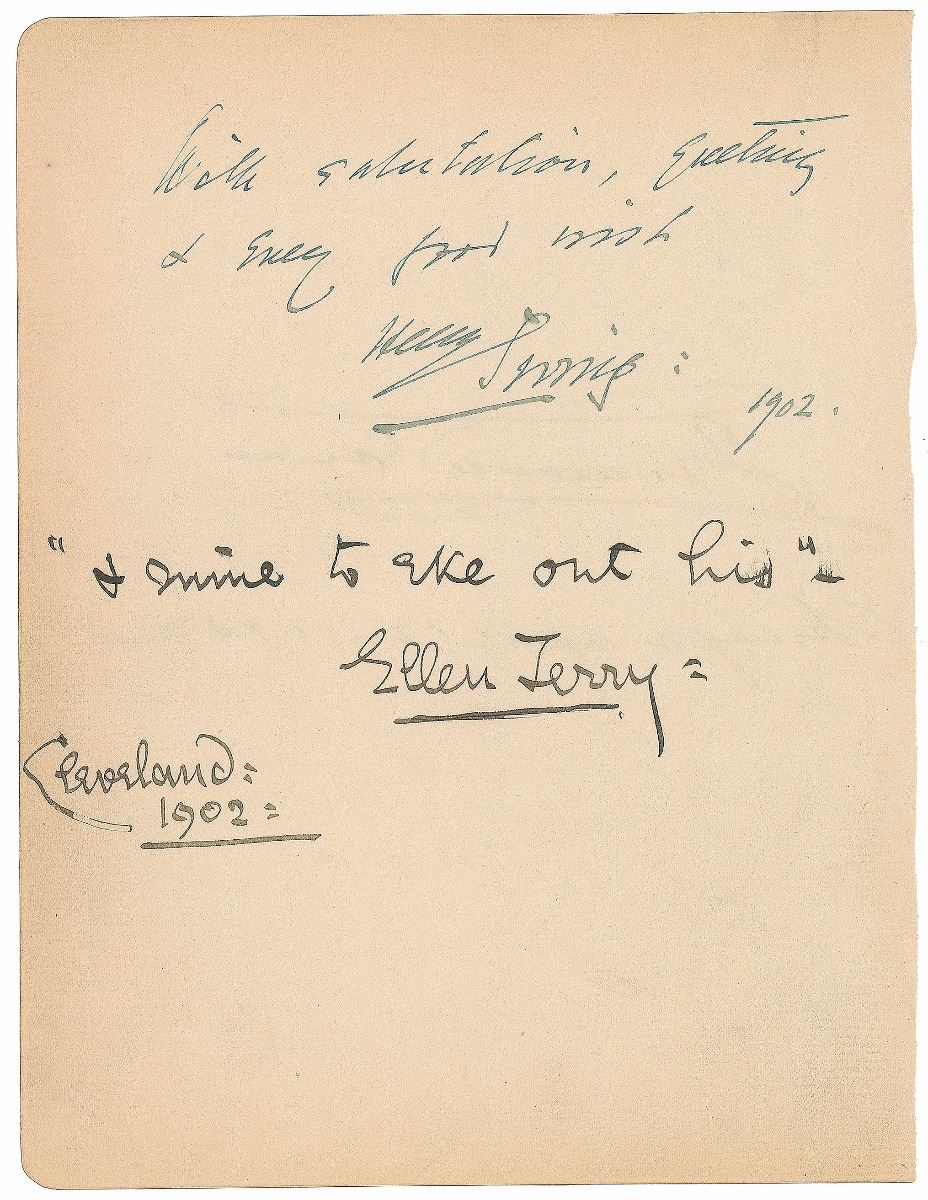 With salutation, greeting
& every good wish
Henry Irving:
1902.
"& mine to eke out his"-
Ellen Terry=
Cleveland:
1902=